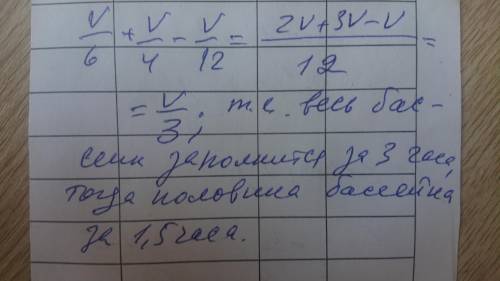 V/6 + V/4 - V/12 = (2V+3V-V)/12 =
= V/3; т.е. весь бас-
сеин заполнится за 3 часа,
тогда половина бассейна
за 1,5 часа.